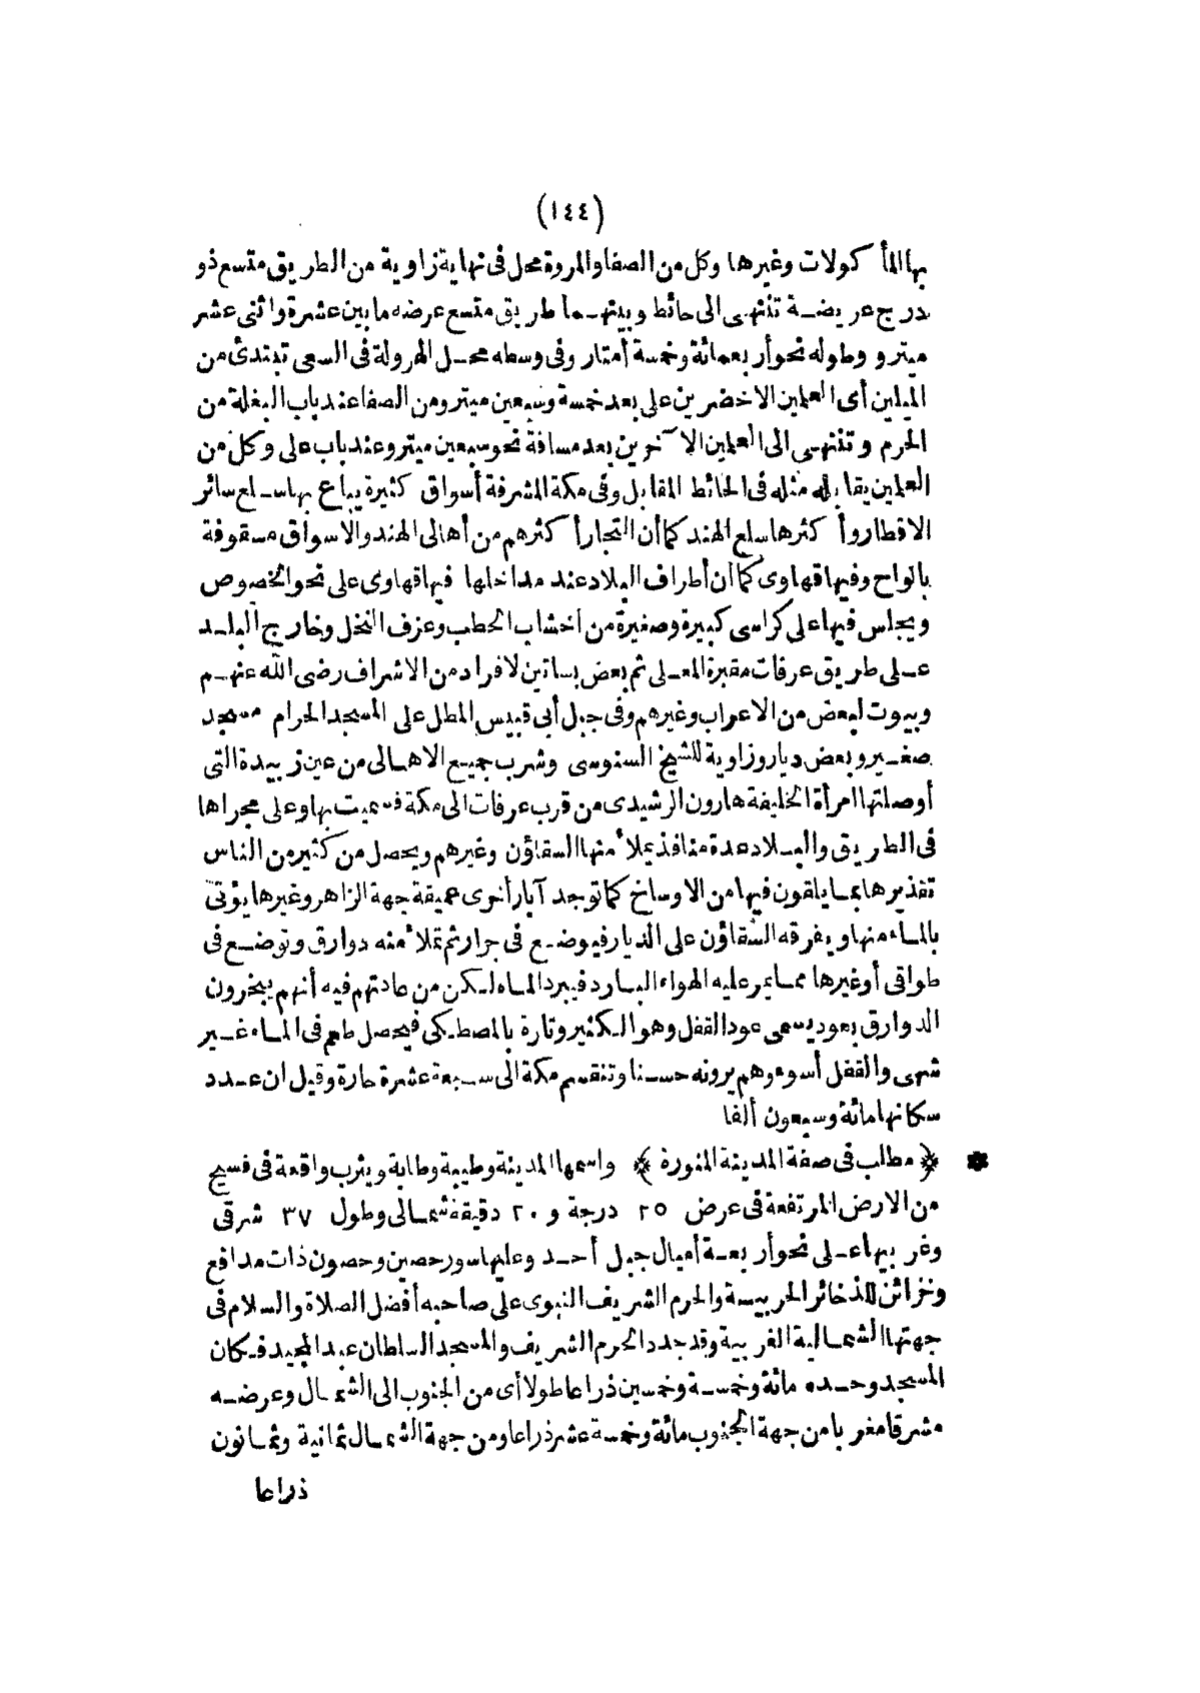 (١٤٤)
بها المأكولات وغيرها وكل من الصفا والمروة محل فى نهاية زاوية من الطريق متسع ذو
درج عريضة تنتهى الى حائط وبينهما طريق متسع عرضه ما بين عشرة واثنى عشر
ميترو وطوله نحو أربعمائة وخمسة أمتار وفى وسطه محل الهرولة فى السعى تبتدئ من
الميلين أى العلمين الاخضرين على بعد خمسة وسبعين ميترو من الصفا عند باب البغلة من
الحرم وتنتهى الى العلمين الآخرين بعد مسافة نحو سبعين ميترو عند باب على وكل من
العلمين يقابله مثله فى الحائط المقابل وفى مكة المشرفة أسواق كثيرة يباع بها سلع سائر
الاقطار وأكثرها سلع الهند كما أن التجار أكثرهم من أهالى الهند والاسواق مسقوفة
بالواح وفيها قهاوى كما أن أطراف البلاد عند مداخلها فيها قهاوى على نحو الخصوص
ويجلس فيها على كراسى كبيرة وصغيرة من أخشاب الحطب وعزف النخل وخارج البلد
على طريق عرفات مقبرة المعلى ثم بعض بساتين لافراد من الاشراف رضى الله عنهم
وبيوت لبعض من الاعراب وغيرهم وفى جبل أبى قبيس المطل على المسجد الحرام مسجد
صغير وبعض ديار وزاوية للشيخ السنوسى وشرب جميع الاهالى من عين زبيدة التى
أوصلتها امرأة الخليفة هارون الرشيدى من قرب عرفات الى مكة فسميت بها وعلى مجراها
فى الطريق والبلاد عدة منافذ يملأ منها السقاؤن وغيرهم ويحصل من كثير من الناس
تقذيرها بما يلقون فيها من الاوساخ كما توجد آبار أخرى عميقة جهة الزاهر وغيرها يؤتى
بالماء منها ويفرقه السقاؤن على الديار فيوضع فى جرار ثم تملأ منه دوارق وتوضع فى
طواقى أو غيرها مما يمر عليه الهواء البارد فيبرد الماء لكن من عادتهم فيه أنهم يبخرون
الدوارق بعود يسمى عود القفل وهو الكثير وتارة بالمصطكى فيحصل طعم فى الماء غير
شهى والقفل أسوء وهم يرونه حسنا وتنقسم مكة الى سبعة عشرة حارة وقيل ان عدد
سكانها مائة وسبعون ألفا
* ﴿مطلب فى صفة المدينة المنورة﴾ واسمها المدينة وطيبة وطابة ويثرب واقعة فى فسيح
من الارض المرتفعة فى عرض ٢٥ درجة و ٢٠ دقيقة شمالى وطول ٣٧ شرقى
وغربيها على نحو أربعة أميال جبل أحد وعليها سور حصين وحصون ذات مدافع
وخزائن للذخائر الحربيسة والحرم الشريف النبوى على صاحبه أفضل الصلاة والسلام فى
جهتها الشمالية الغربية وقد جدد الحرم الشريف والمسجد السلطان عبد المجيد فكان
المسجد وحده مائة وخمسة وخمسين ذراعا طولا أى من الجنوب الى الشمال وعرضه
مشرقا مغربا من جهة الجنوب مائة وخمسة عشر ذراعا ومن جهة الشمال ثمانية وثمانون
ذراعا